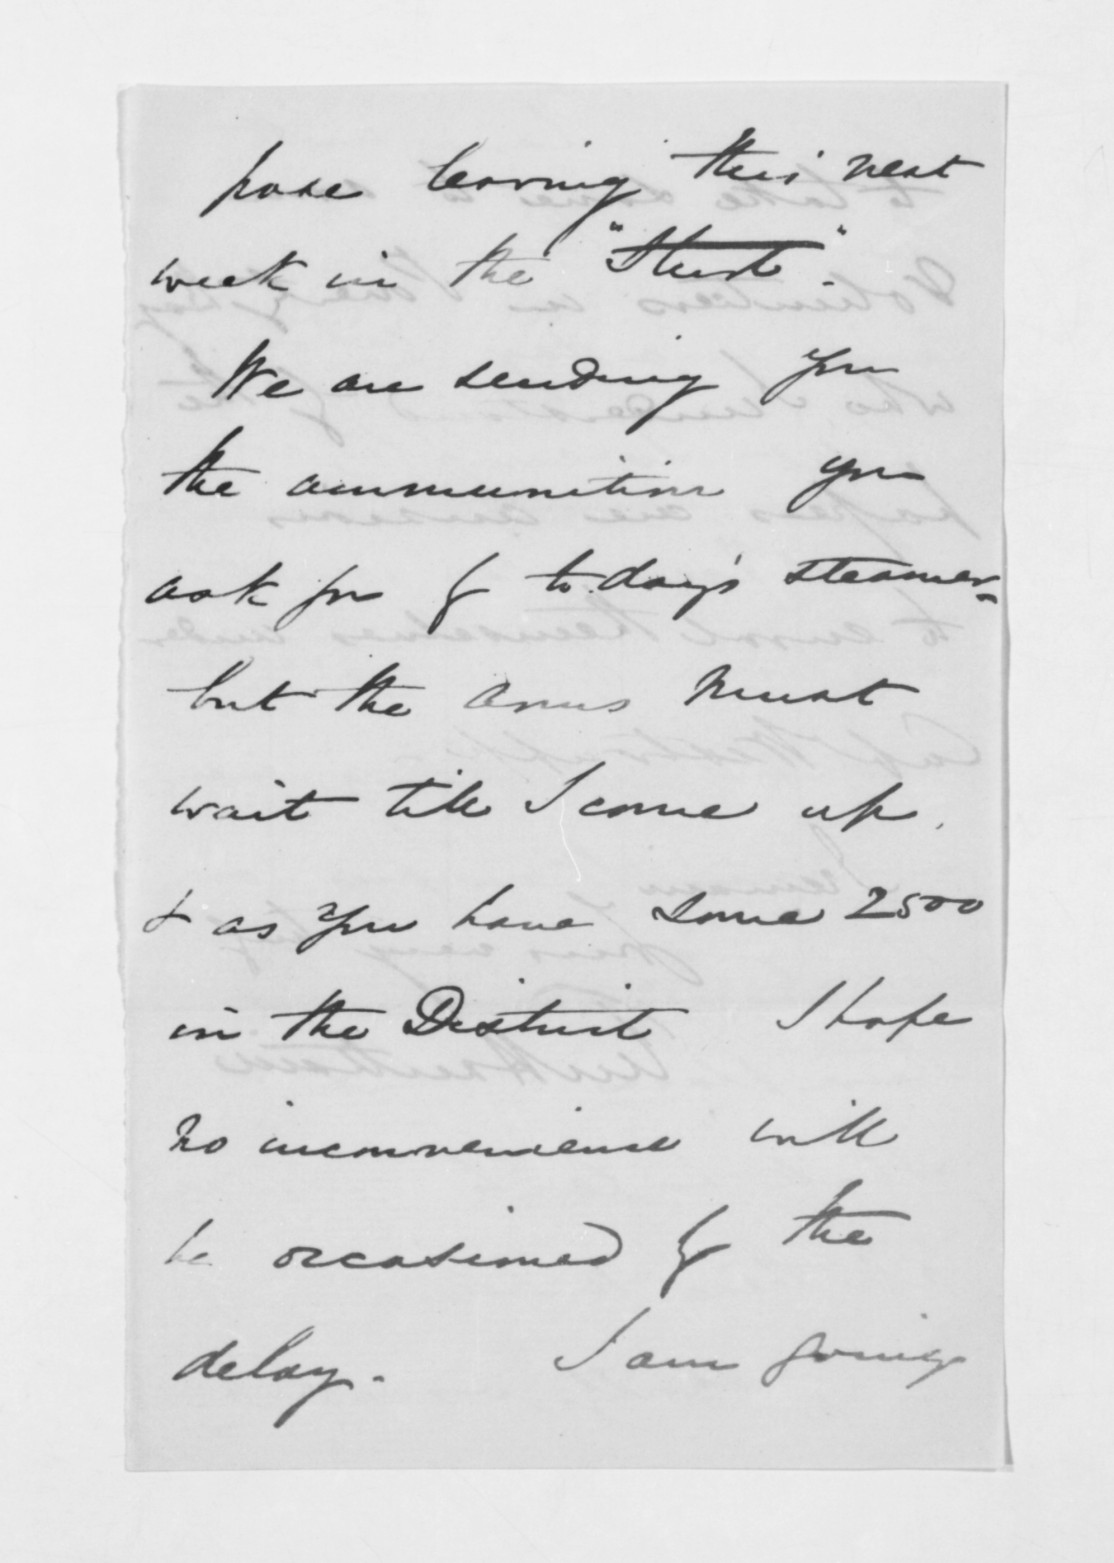 pose leaving this next
week in the "Sturt".
We are sending you
the ammunition you
ask for by to.day's steamer_
but the arms must
wait till I come up.
& as you have some 2500
in the District I hope
no inconvenience will
be occasioned by the
delay. I am going